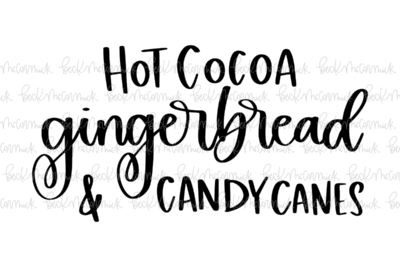 HOT COCOA
gingerbread
& CANDY CANES